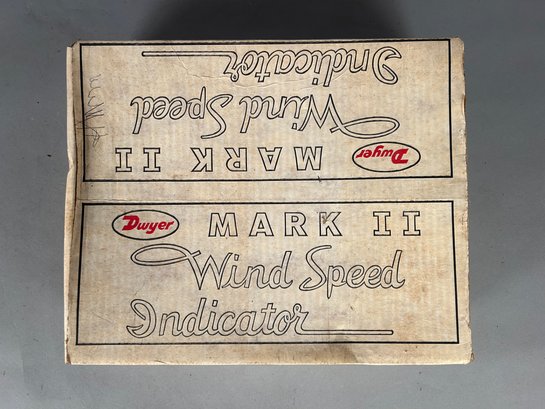 Dwyer MARK II
Wind Speed
Indicator
Dwyer MARK II
Wind Speed
Indicator